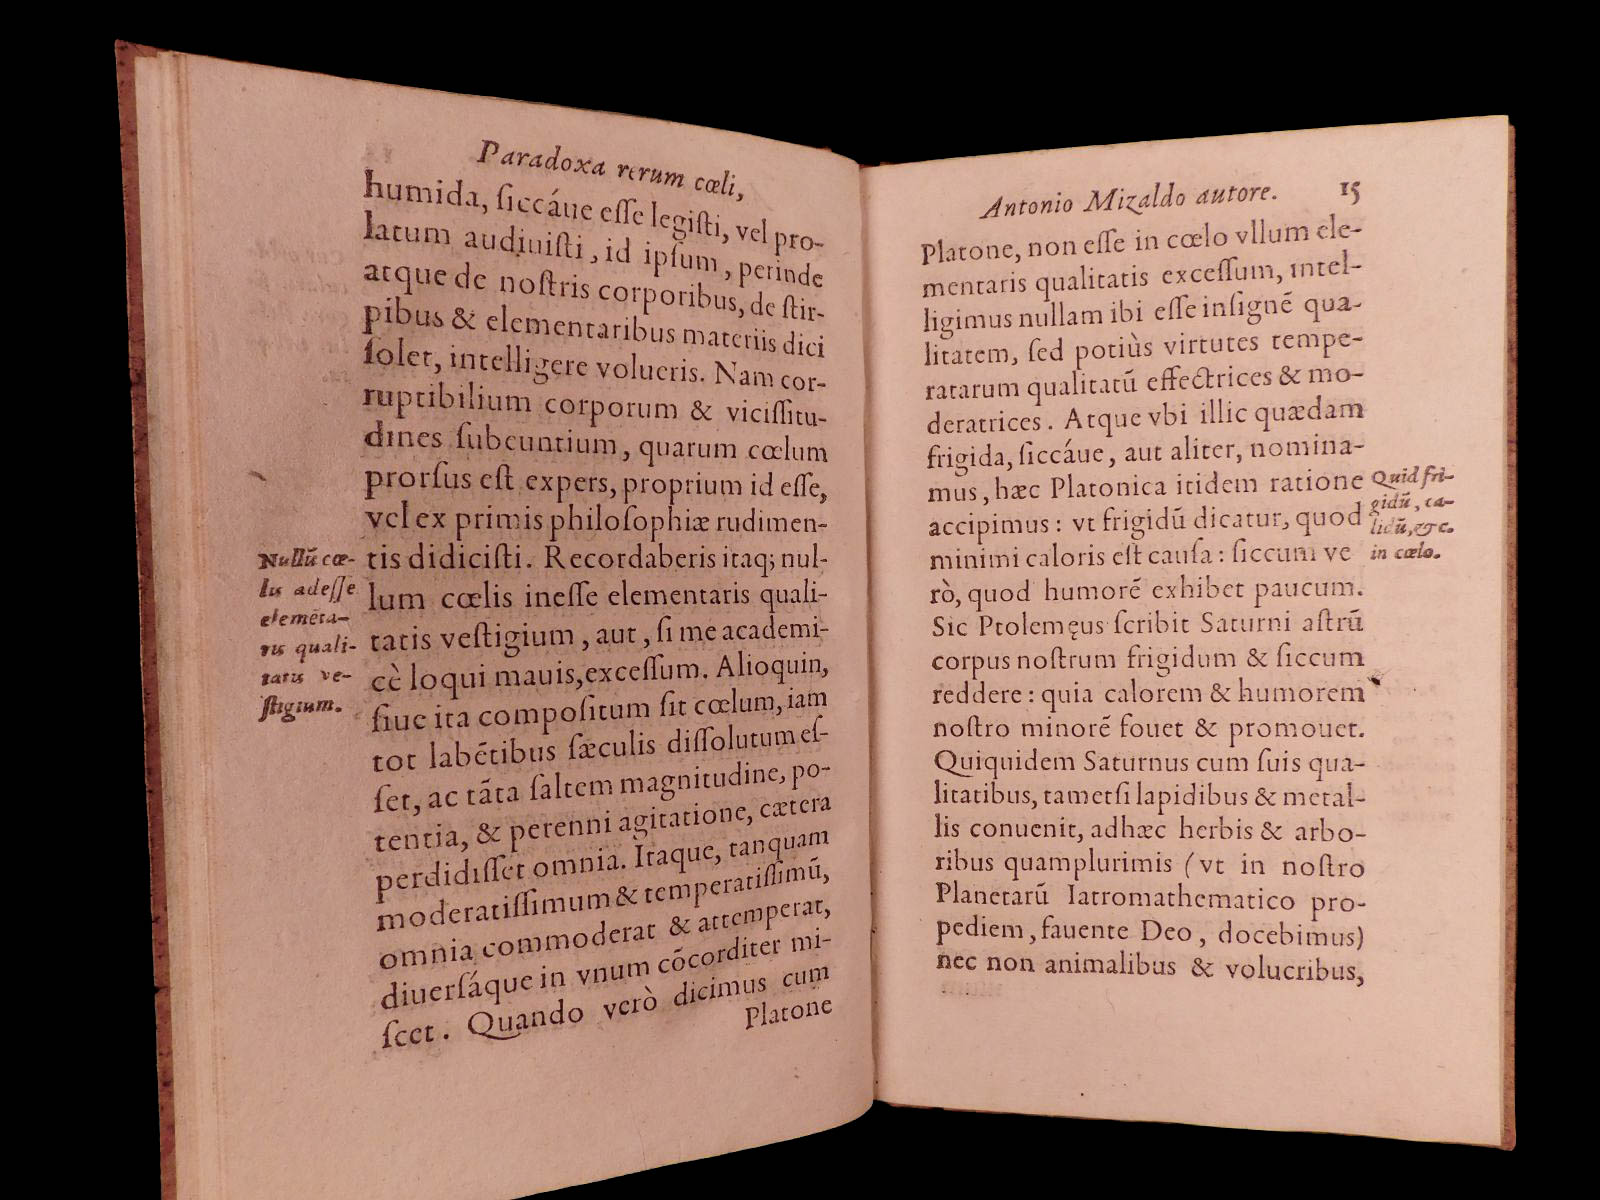 Paradoxa rerum cœli,
humida, ſiccáue eſſe legiſti, vel pro-
latum audiuiſti, id ipſum, perinde
atque de noſtris corporibus, de ſtir-
pibus & elementaribus materiis dici
ſolet, intelligere volueris. Nam cor-
ruptibilium corporum & viciſſitu-
dines ſubeuntium, quarum cœlum
prorſus eſt expers, proprium id eſſe,
vel ex primis philoſophiæ rudimen-
tis didiciſti. Recordaberis itaq; nul-
lum cœlis ineſſe elementaris quali-
tatis veſtigium, aut, ſi me academi-
cè loqui mauis, exceſſum. Alioquin,
ſiue ita compoſitum ſit cœlum, iam
tot labẽtibus ſæculis diſſolutum eſ-
ſet, ac tãta ſaltem magnitudine, po-
tentia, & perenni agitatione, cætera
perdidiſſet omnia. Itaque, tanquam
moderatiſſimum & temperatiſſimũ,
omnia commoderat & attemperat,
diuerſáque in vnum cõcorditer mi-
ſcet. Quando verò dicimus cum
Platone
Nullũ cœ-
lis adeſſe
elemẽta-
ris quali-
tatis ve-
ſtigium.
Antonio Mizaldo autore. 15
Platone, non eſſe in cœlo vllum ele-
mentaris qualitatis exceſſum, intel-
ligimus nullam ibi eſſe inſignẽ qua-
litatem, ſed potiùs virtutes tempe-
ratarum qualitatũ effectrices & mo-
deratrices. Atque vbi illic quædam
frigida, ſiccáue, aut aliter, nomina-
mus, hæc Platonica itidem ratione
accipimus: vt frigidũ dicatur, quod
minimi caloris eſt cauſa: ſiccum ve
rò, quod humorẽ exhibet paucum.
Sic Ptolemęus ſcribit Saturni aſtrũ
corpus noſtrum frigidum & ſiccum
reddere: quia calorem & humorem
noſtro minorẽ fouet & promouet.
Quiquidem Saturnus cum ſuis qua-
litatibus, tametſi lapidibus & metal-
lis conuenit, adhæc herbis & arbo-
ribus quamplurimis (vt in noſtro
Planetarũ Iatromathematico pro-
pediem, fauente Deo, docebimus)
nec non animalibus & volucribus,
Quid fri-
gidũ, ca-
lidũ, &c.
in cœlo.